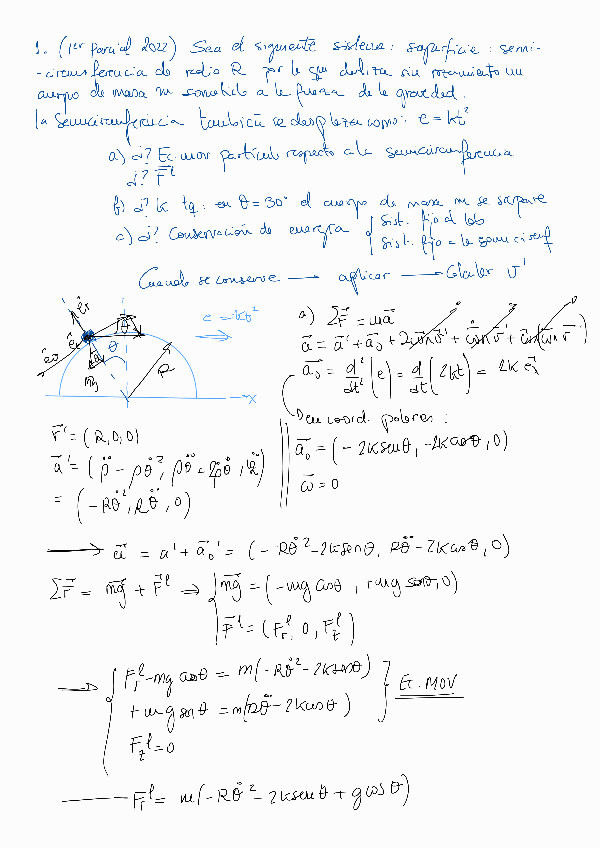 1. (1er parcial 2022) Sea el siguiente sistema: superficie: semi-
-circunferencia de radio R por la que desliza sin rozamiento un
cuerpo de masa m sometido a la fuerza de la gravedad.
La semicircunferencia también se desplaza como: e = kt²
a) d? Ec. mov partícula respecto a la semicircunferencia
d? F⃗ˡ
b) d? k tq. en θ = 30° el cuerpo de masa m se separe
c) d? Conservación de energía { sist. fijo al lab
sist. fijo a la semicircunf
Cuando se conserve → aplicar → Calcular v⃗'
êr
êθ
θ
mg
R
x
e = kt²
a) ΣF⃗ = ma⃗
a⃗ = a⃗' + a⃗₀ + 2ω⃗×v⃗' + ω⃗×r⃗' + ω⃗×(ω⃗×r⃗')
a⃗₀ = d²/dt² (e) = d/dt (2kt) = 2k e⃗x
En coord. polares:
a⃗₀ = (-2k senθ, -2k cosθ, 0)
ω⃗ = 0
r⃗' = (R, 0, 0)
a⃗' = (ρ̈ - ρθ̇², ρθ̈ + 2ρ̇θ̇, z̈)
= (-Rθ̇², Rθ̈, 0)
→ a⃗ = a' + a⃗₀' = (-Rθ̇² - 2k senθ, Rθ̈ - 2k cosθ, 0)
ΣF⃗ = mg⃗ + F⃗ˡ ⇒ { mg⃗ = (-mg cosθ, +mg senθ, 0)
F⃗ˡ = (Frˡ, 0, Fzˡ)
→ { Frˡ - mg cosθ = m(-Rθ̇² - 2k senθ)
+ mg senθ = m(Rθ̈ - 2k cosθ) } Ec. MOV
Fzˡ = 0
Frˡ = m(-Rθ̇² - 2k senθ + g cosθ)